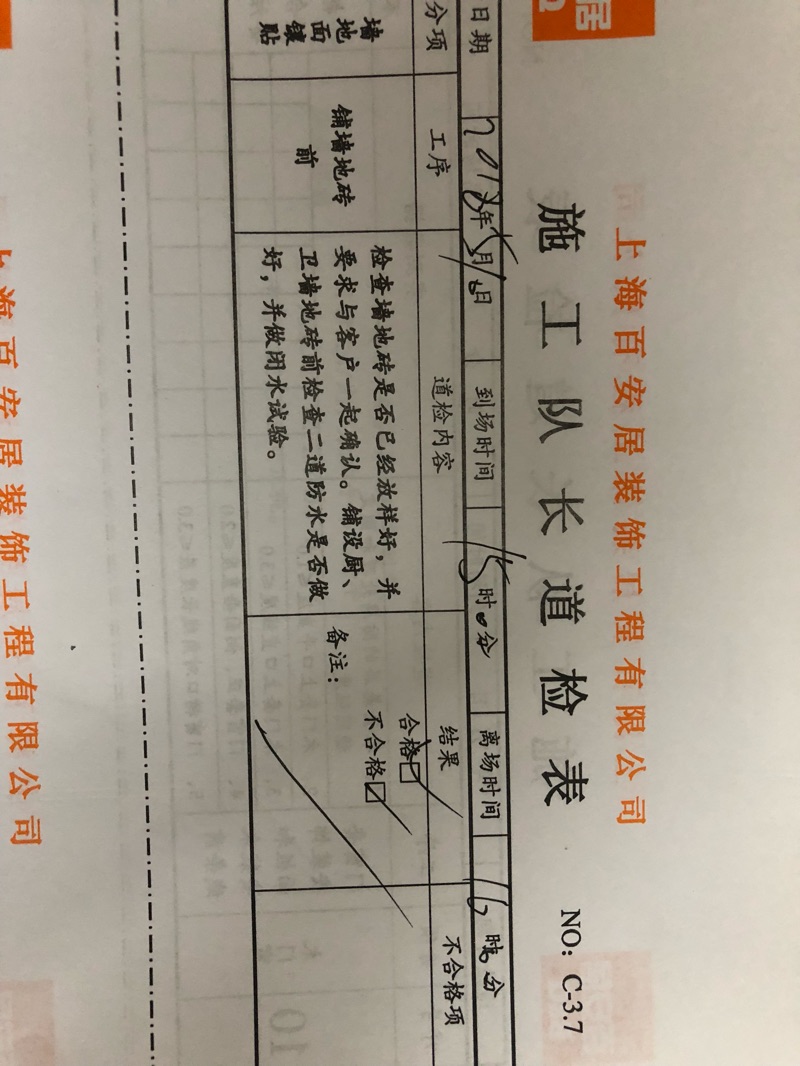 居
上海百安居装饰工程有限公司
施工队长道检表
NO: C-3.7
日期
年 月 日
到场时间
15时0分
离场时间
16时 分
分项
工序
道检内容
结果
不合格项
墙
地
面
镶
贴
铺墙地砖
前
检查墙地砖是否已经放样好，并
要求与客户一起确认。铺设厨、
卫墙地砖前检查二道防水是否做
好，并做闭水试验。
合格
不合格
备注：
上海百安居装饰工程有限公司